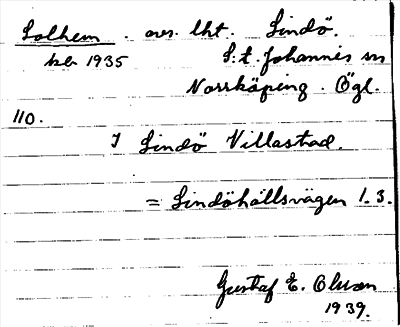 Solhem. avs. lht. Lindö.
ber 1935 S:t Johannis sn
Norrköping. Ögl.
110.
I Lindö Villastad.
= Lindöhällsvägen 1.3.
Gustaf E. Olsson
1939.